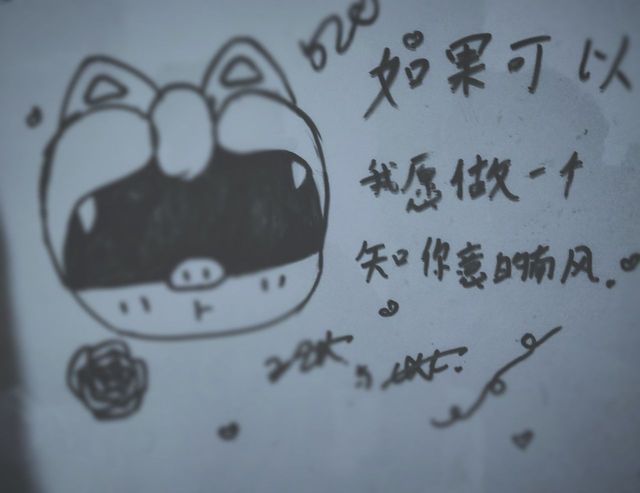 520
如果可以
我愿做一个
知你意的南风.